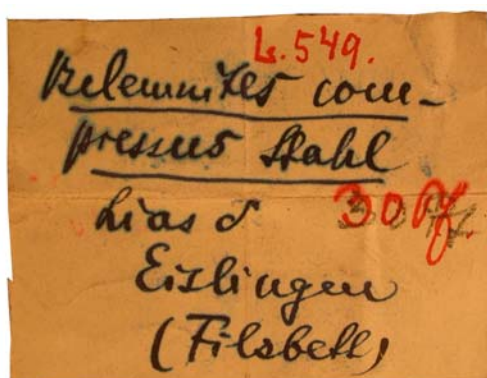 L. 549.
Belemnites com-
pressus Stahl
Lias δ
30 Pf.
Eislingen
(Filsbett)